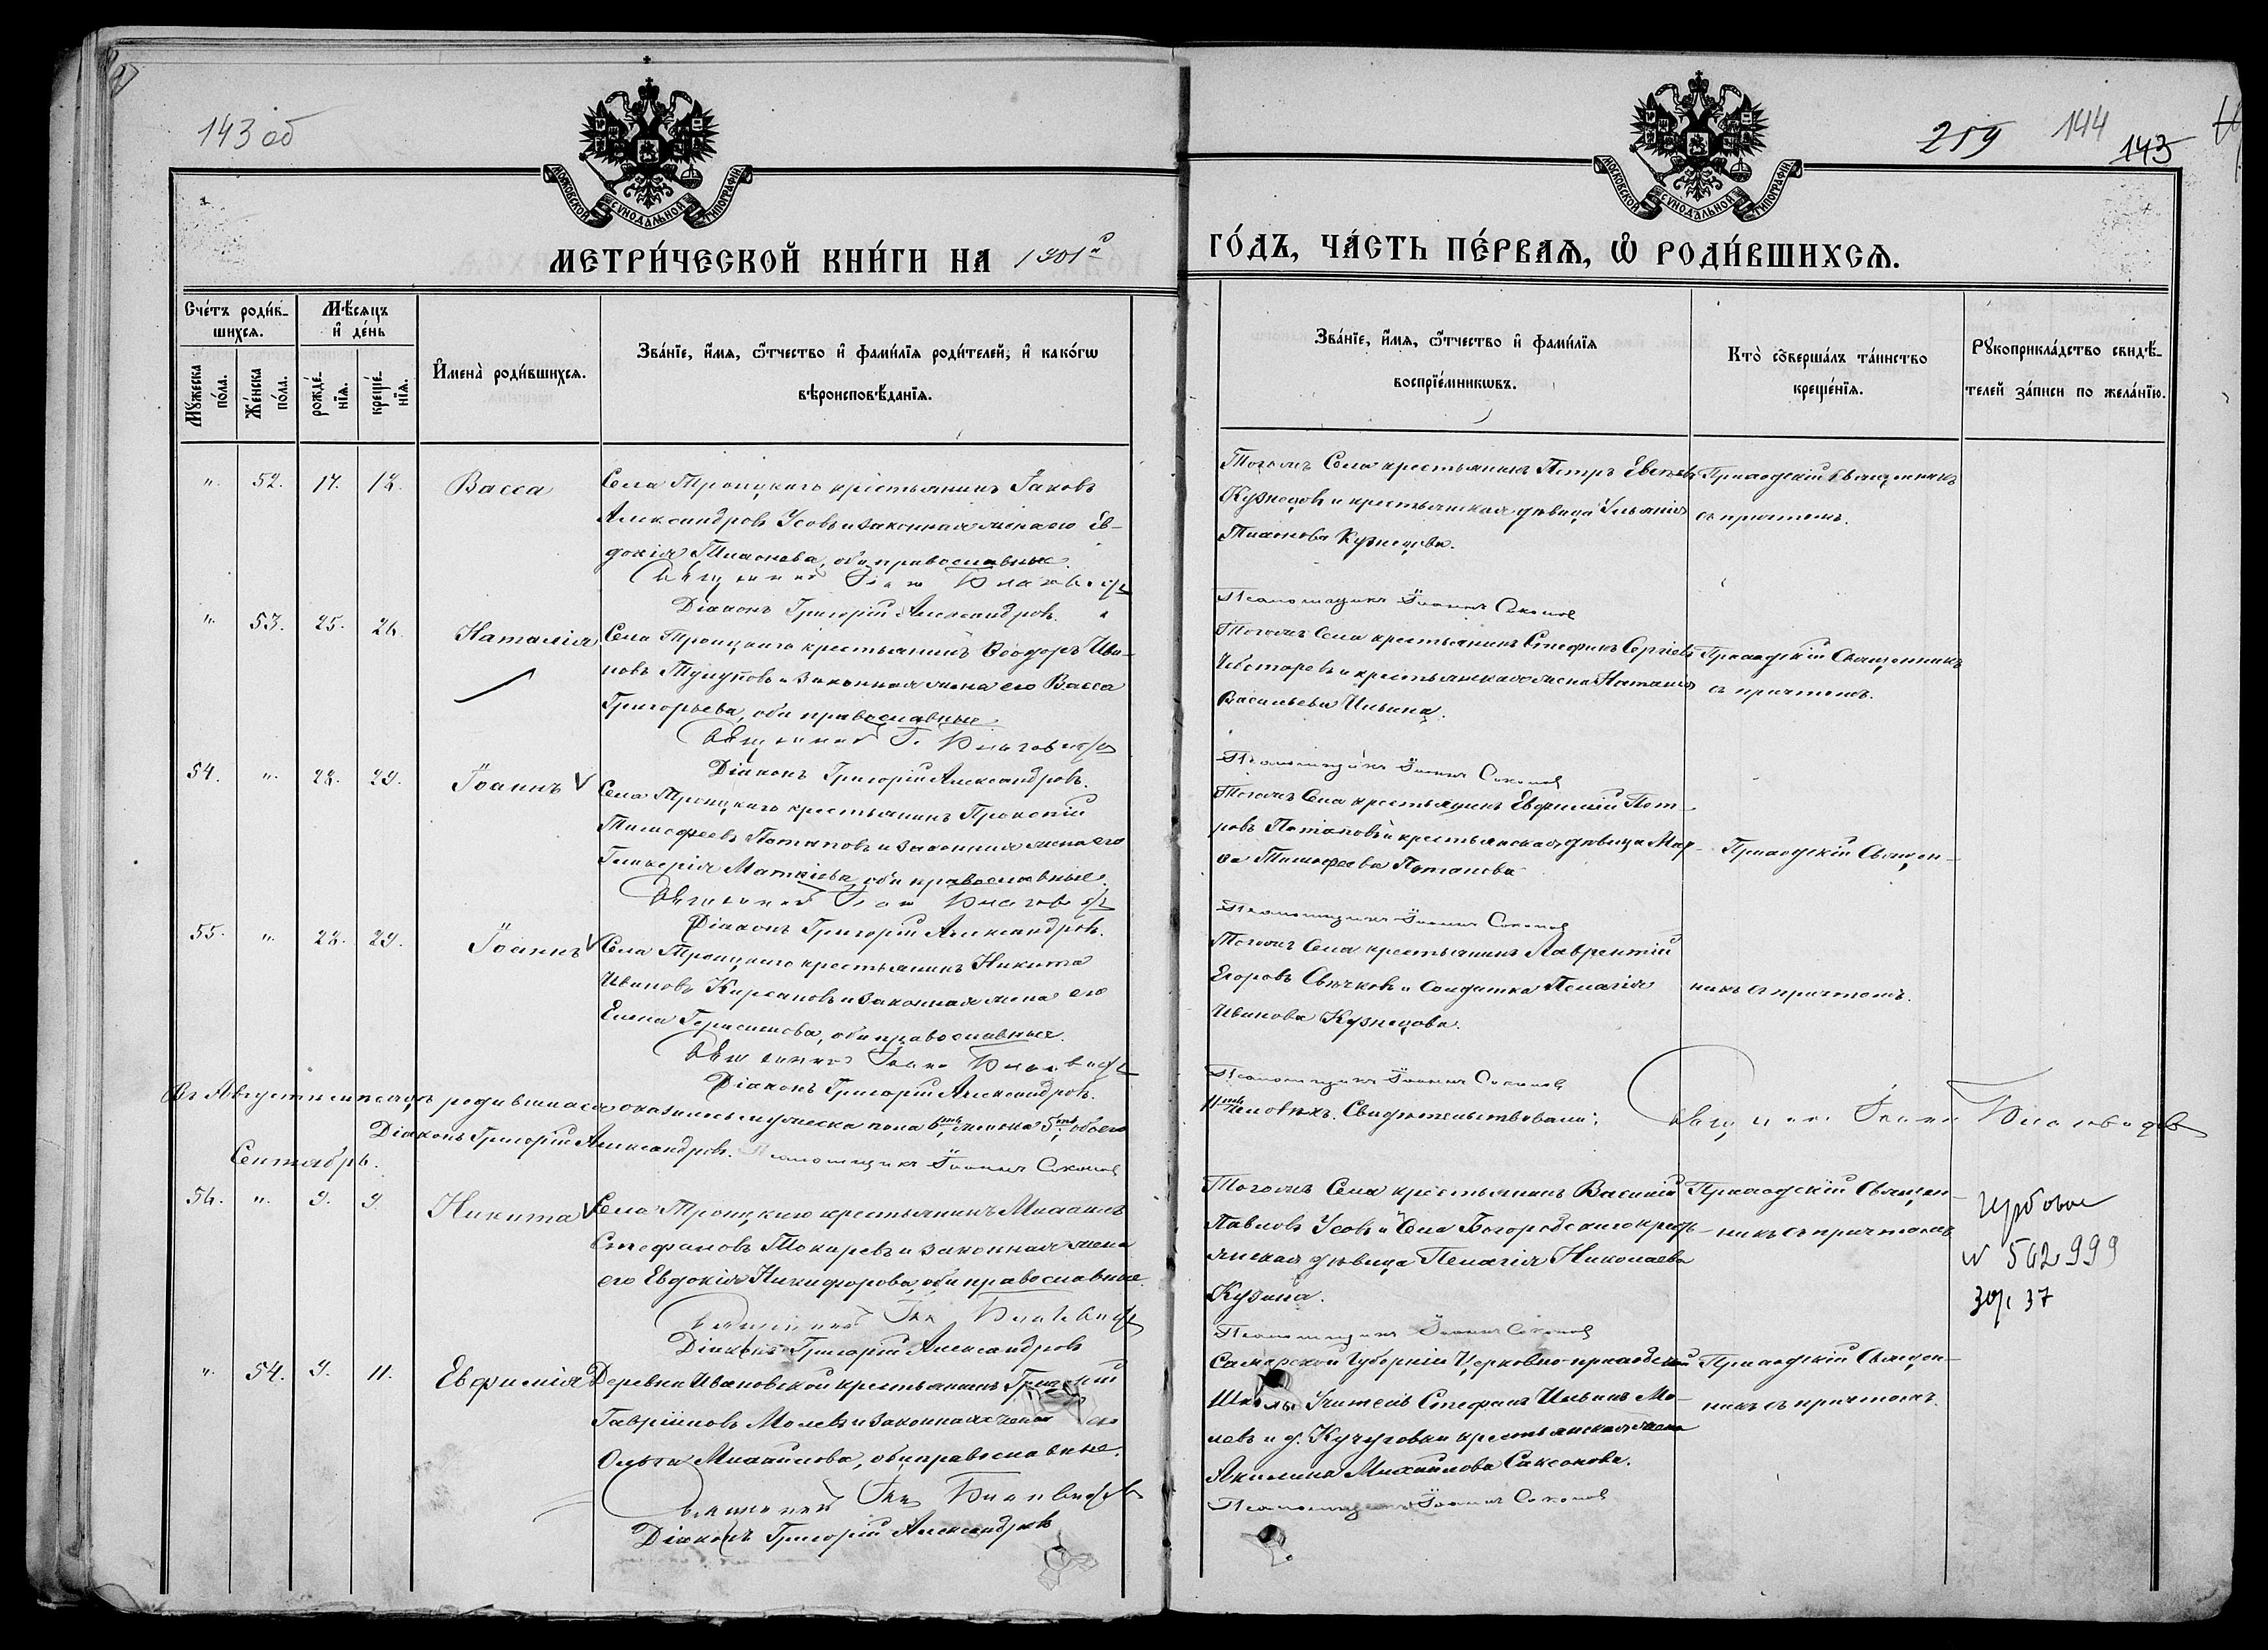 143 об
259 144 143
МОСКОВСКОЙ СѴНОДАЛЬНОЙ ТИПОГРАФІИ
МОСКОВСКОЙ СѴНОДАЛЬНОЙ ТИПОГРАФІИ
МЕТРИ́ЧЕСКОЙ КНИ́ГИ НА 1901й
ГО́ДЪ, ЧА́СТЬ ПЕ́РВАѦ, Ѡ҆ РОДИ́ВШИХСѦ.
Сче́тъ роди́в-
шихсѧ.
Мꙋ́жеска по́ла.
Же́нска по́ла.
Мѣ́сѧцъ
и҆ де́нь
рожде́-
нїѧ.
креще́-
нїѧ.
И҆мена̀ роди́вшихсѧ.
Зва́нїе, и҆́мѧ, ѻ҆́тчество и҆ фами́лїѧ роди́телей, и҆ како́гѡ
вѣроисповѣ́данїѧ.
Зва́нїе, и҆́мѧ, ѻ҆́тчество и҆ фами́лїѧ
воспрїе́мникѡвъ.
Кто̀ соверша́лъ та́инство
креще́нїѧ.
Рꙋкоприкла́дство свидѣ́-
телей за́писи по жела́нїю.
" 52. 17. 18. Васса
Села Троицкаго крестьянинъ Іаковъ
Александровъ Усовъ и законная жена его Ев-
докія Тихонова, оба православные.
Священникъ
Діаконъ Григорій Александровъ.
Тогожъ Села крестьянинъ Петръ
Кузнецовъ и крестьянская дѣвица Ульянія
Тихонова Кузнецова.
Псаломщикъ Іоаннъ Соколов
Приходскій Священникъ
съ причтомъ.
" 53. 25. 26. Наталія
Села Троицкаго крестьянинъ Ѳеодоръ Ива-
новъ Тулуповъ и законная жена его Васса
Григорьева, оба православные
Священникъ
Діаконъ Григорій Александровъ.
Тогожъ Села крестьянинъ Стефанъ Сергіевъ
и крестьянская жена Наталія
Васильева Ильина.
Псаломщикъ Іоаннъ Соколов
Приходскій Священникъ
съ причтомъ.
54. " 28. 29. Іоаннъ
Села Троицкаго крестьянинъ Прокопій
Тимофеевъ Потаповъ и законная жена его
Гликерія Матвіева, оба православные.
Священникъ
Діаконъ Григорій Александровъ.
Тогожъ Села крестьянинъ Евфимій Пет-
ровъ Потаповъ и крестьянская дѣвица Мар-
ѳа Тимофеева Потапова
Псаломщикъ Іоаннъ Соколов
Приходскій Священ-
55. " 28. 29. Іоаннъ
Села Троицкаго крестьянинъ Никита
Ивановъ Кирсановъ и законная жена его
Елена Герасимова, оба православные.
Священникъ
Діаконъ Григорій Александровъ.
Тогожъ Села крестьянинъ Лаврентій
Егоровъ Свѣчковъ и Солдатка Пелагія
Иванова Кузнецова.
Псаломщикъ Іоаннъ Соколов
никъ съ причтомъ.
Въ Августе мѣсяцѣ родившихся оказалось мужеска пола 6ть, женска 5ть, обоего
11ть человѣкъ. Свидѣтельствовали:
Діаконъ Григорій Александровъ. Псаломщикъ Іоаннъ Соколов
Сентябрь.
56. " 9. 9. Никита
Села Троицкаго крестьянинъ Михаилъ
Стефановъ Токаревъ и законная жена
его Евдокія Никифорова, оба православные.
Діаконъ Григорій Александровъ
Тогожъ Села крестьянинъ Василій
Павловъ Усовъ и Села Богородскаго кресть-
янская дѣвица Пелагія Николаева
Кузина.
Псаломщикъ Іоаннъ Соколов
Приходскій Священ-
никъ съ причтомъ.
N 562999
37
" 54. 9. 11. Евфимія
Деревни Ивановской крестьянинъ
Гавріиловъ Молевъ и законная жена его
Ольга Михаилова, оба православные.
Діаконъ Григорій Александровъ
Самарской Губерніи Церковно-приходской
Школы Учитель Стефанъ Ильинъ Мо-
левъ и д. Кучуговки крестьянская жена
Акилина Михаилова Саксонова.
Псаломщикъ Іоаннъ Соколов
Приходскій Священ-
никъ съ причтомъ.